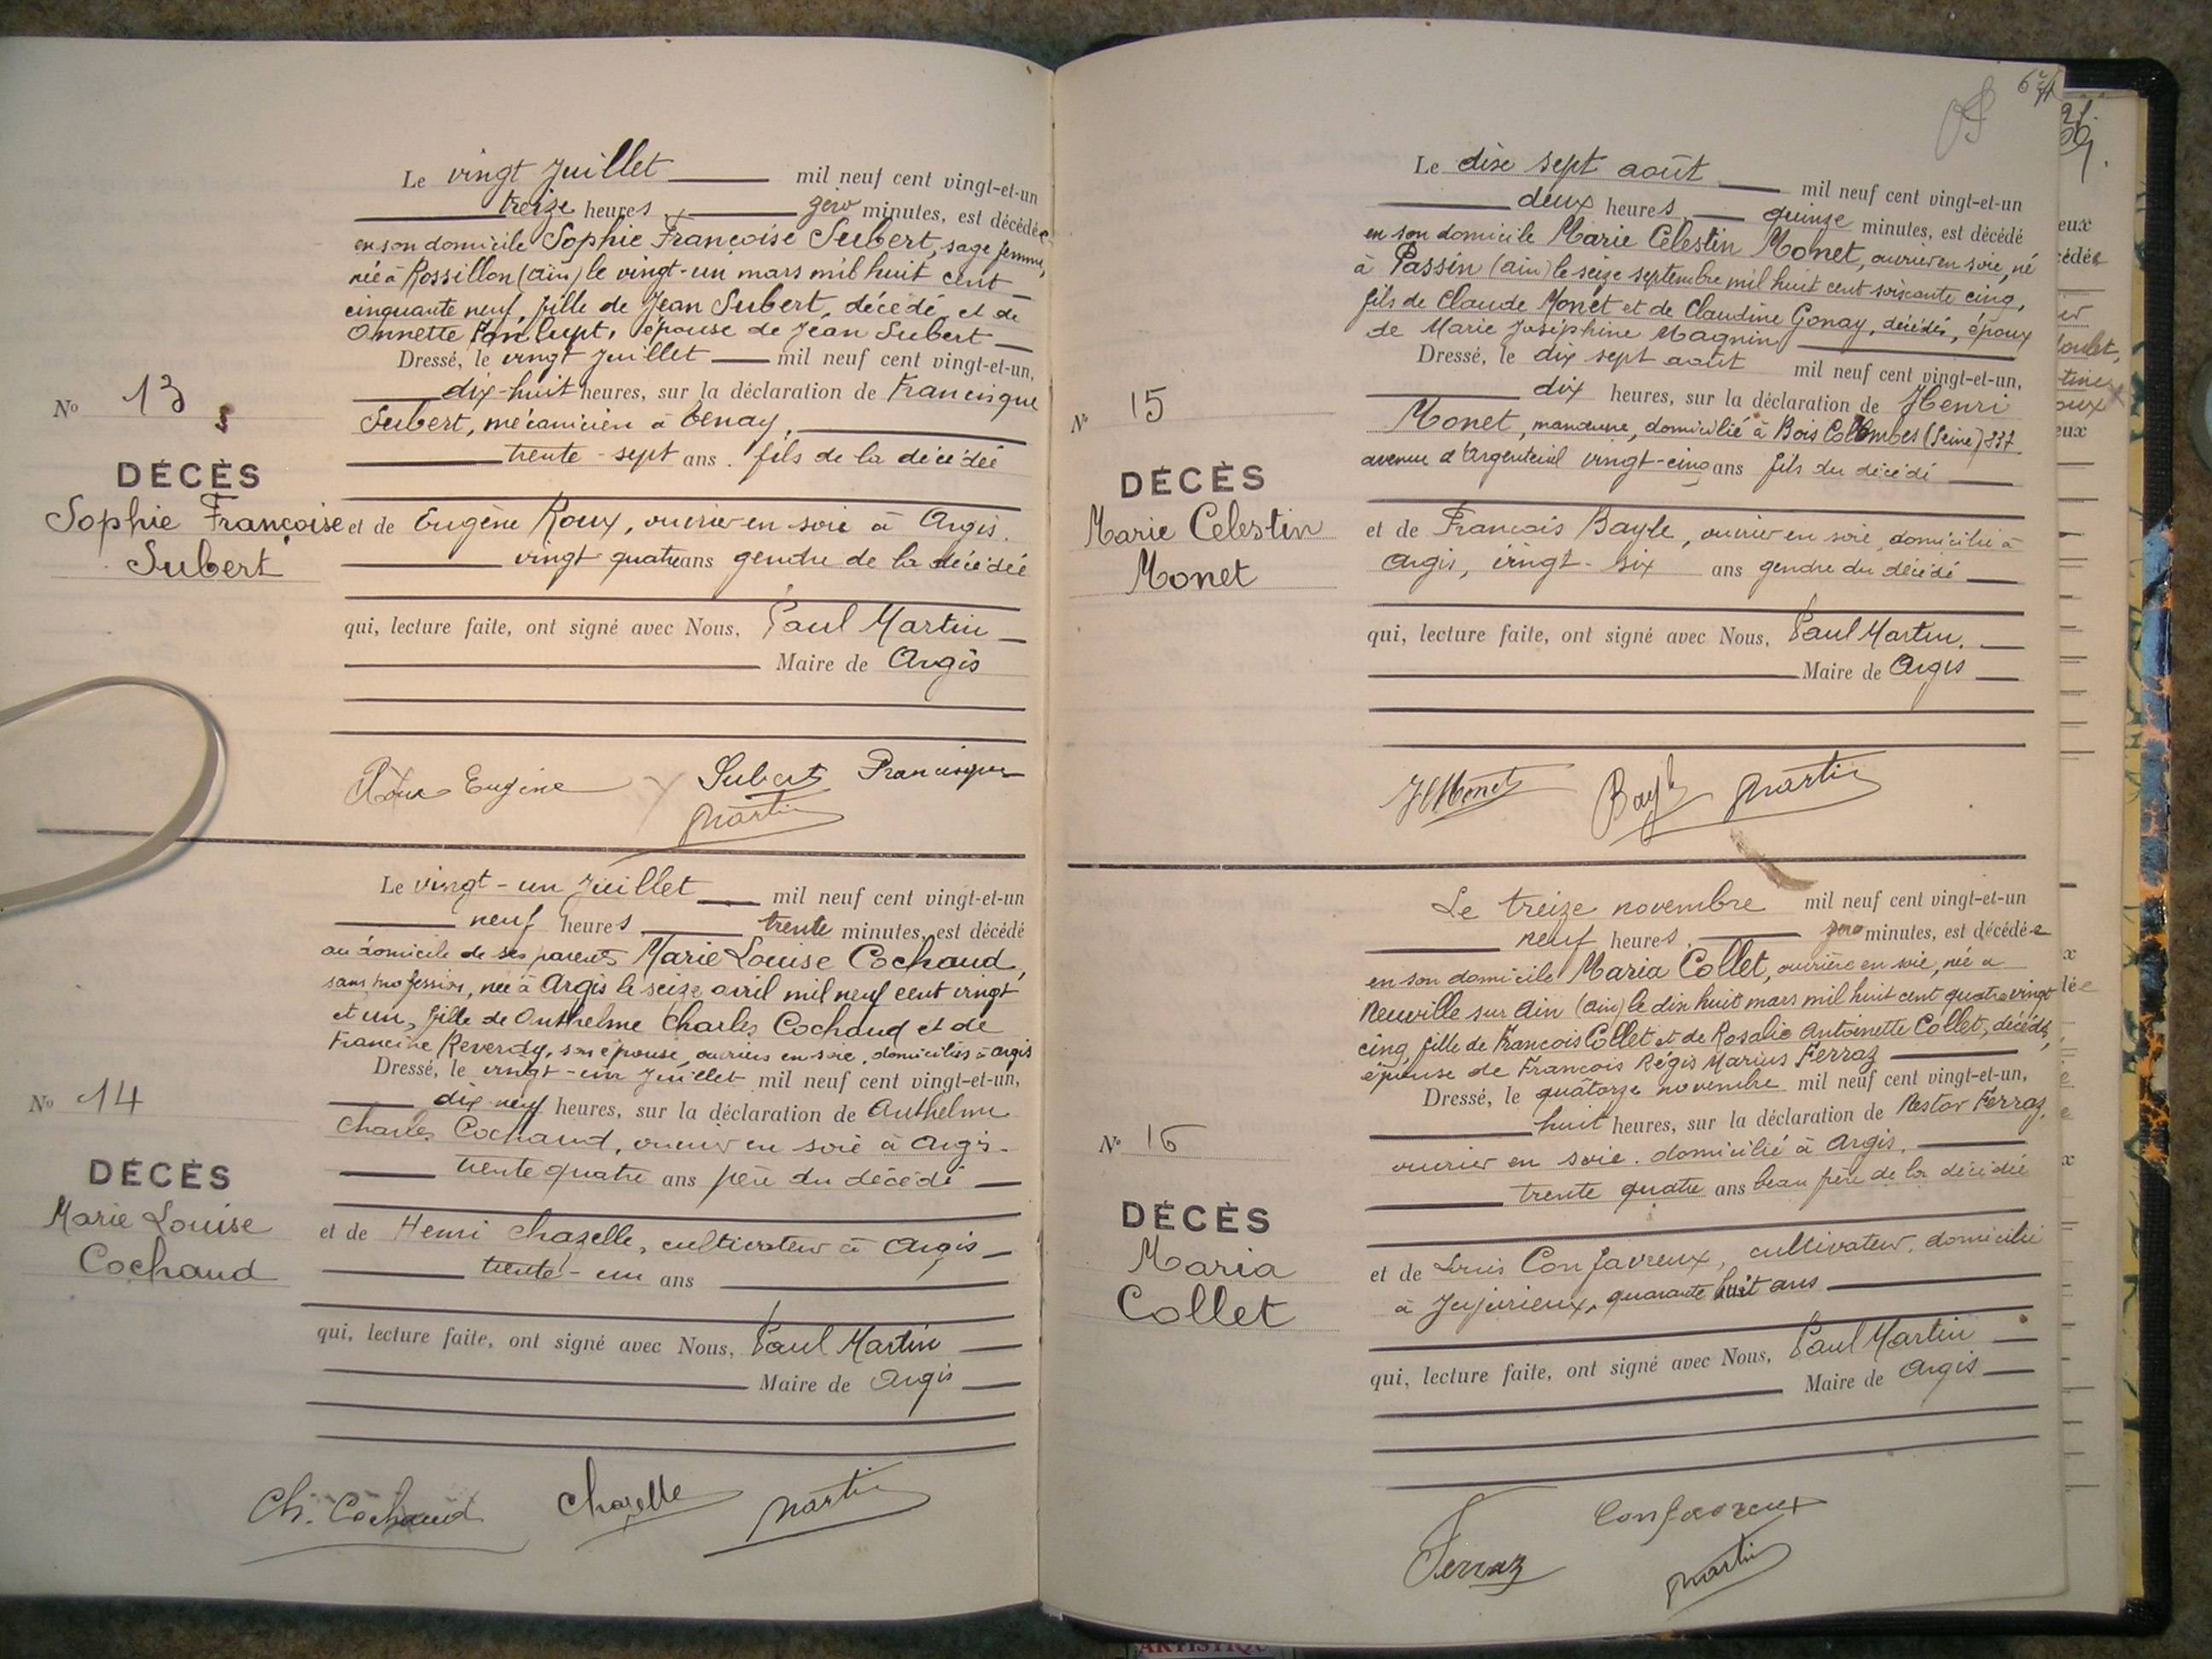 Le vingt Juillet mil neuf cent vingt-et-un
treize heures zero minutes, est décédée
en son domicile Sophie Françoise Subert, sage femme,
née à Rossillon (ain) le vingt-un mars mil huit cent
cinquante neuf, fille de Jean Subert, décédé, et de
Annette Panlupt, épouse de Jean Subert
Dressé, le vingt Juillet mil neuf cent vingt-et-un,
dix-huit heures, sur la déclaration de Francisque
No 13
Subert, mécanicien à Tenay,
trente-sept ans. fils de la décédée
DÉCÈS
Sophie Françoise et de Eugène Roux, ouvrier en soie à Argis.
Subert
vingt quatre ans gendre de la décédée
qui, lecture faite, ont signé avec Nous, Paul Martin
Maire de Argis
Roux Eugène Subert Francisque
Martin
Le vingt-un Juillet mil neuf cent vingt-et-un
neuf heures trente minutes, est décédé
au domicile de ses parents Marie Louise Cochaud,
sans profession, née à Argis le seize avril mil neuf cent vingt
et un, fille de Anthelme Charles Cochaud et de
Francine Reverdy, son épouse, ouvriers en soie, domiciliés à argis
Dressé, le vingt-un Juillet mil neuf cent vingt-et-un,
No 14
dix neuf heures, sur la déclaration de Anthelme
Charles Cochaud, ouvrier en soie à Argis.
DÉCÈS
trente quatre ans père du décédé
Marie Louise
Cochaud
et de Henri Chazelle, cultivateur à Argis
trente-un ans
qui, lecture faite, ont signé avec Nous, Paul Martin
Maire de Argis
Ch. Cochaud Chazelle Martin
Le dix sept août mil neuf cent vingt-et-un
deux heures quinze minutes, est décédé
en son domicile Marie Celestin Monet, ouvrier en soie, né
à Passin (ain) le seize septembre mil huit cent soixante cinq,
fils de Claude Monet et de Claudine Gonay, décédés, époux
de Marie Joséphine Magnin
Dressé, le dix sept août mil neuf cent vingt-et-un,
No 15
dix heures, sur la déclaration de Henri
Monet, manœuvre, domicilié à Bois Colombes (Seine) 337
avenue d'Argenteuil vingt-cinq ans fils du décédé
DÉCÈS
Marie Celestin
Monet
et de François Bayle, ouvrier en soie, domicilié à
Argis, vingt-six ans gendre du décédé
qui, lecture faite, ont signé avec Nous, Paul Martin.
Maire de Argis
H Monet Bayle Martin
Le treize novembre mil neuf cent vingt-et-un
neuf heures, zero minutes, est décédée
en son domicile Maria Collet, ouvrière en soie, née a
Neuville sur Ain (ain) le dix huit mars mil huit cent quatre vingt
cinq, fille de François Collet et de Rosalie Antoinette Collet, décédés,
épouse de François Régis Marius Ferraz
Dressé, le quatorze novembre mil neuf cent vingt-et-un,
No 16
huit heures, sur la déclaration de Nestor Ferraz,
ouvrier en soie. domicilié à Argis,
trente quatre ans beau frère de la décédée
DÉCÈS
Maria
Collet
et de Louis Confavreux, cultivateur, domicilié
à Jujurieux, quarante huit ans
qui, lecture faite, ont signé avec Nous, Paul Martin
Maire de Argis
Ferraz Confavreux
Martin